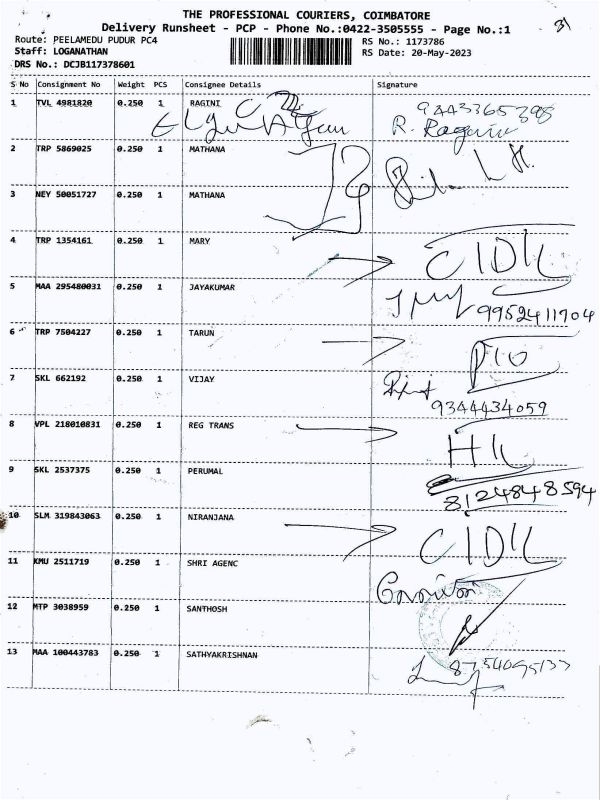 THE PROFESSIONAL COURIERS, COIMBATORE
Delivery Runsheet - PCP - Phone No.:0422-3505555 - Page No.:1
31
Route: PEELAMEDU PUDUR PC4
RS No.: 1173786
Staff: LOGANATHAN
RS Date: 20-May-2023
DRS No.: DCJB117378601
S No Consignment No Weight PCS Consignee Details Signature
1 TVL 4981820 0.250 1 RAGINI
R. Ragini
2 TRP 5869025 0.250 1 MATHANA
3 NEY 50051727 0.250 1 MATHANA
4 TRP 1354161 0.250 1 MARY
CIDIL
5 MAA 295480031 0.250 1 JAYAKUMAR
9952411704
6 TRP 7504227 0.250 1 TARUN
7 SKL 662192 0.250 1 VIJAY
9344434059
8 VPL 218010831 0.250 1 REG TRANS
9 SKL 2537375 0.250 1 PERUMAL
8124848594
10 SLM 319843063 0.250 1 NIRANJANA
CIDIL
11 KMU 2511719 0.250 1 SHRI AGENC
12 MTP 3038959 0.250 1 SANTHOSH
13 MAA 100443783 0.250 1 SATHYAKRISHNAN